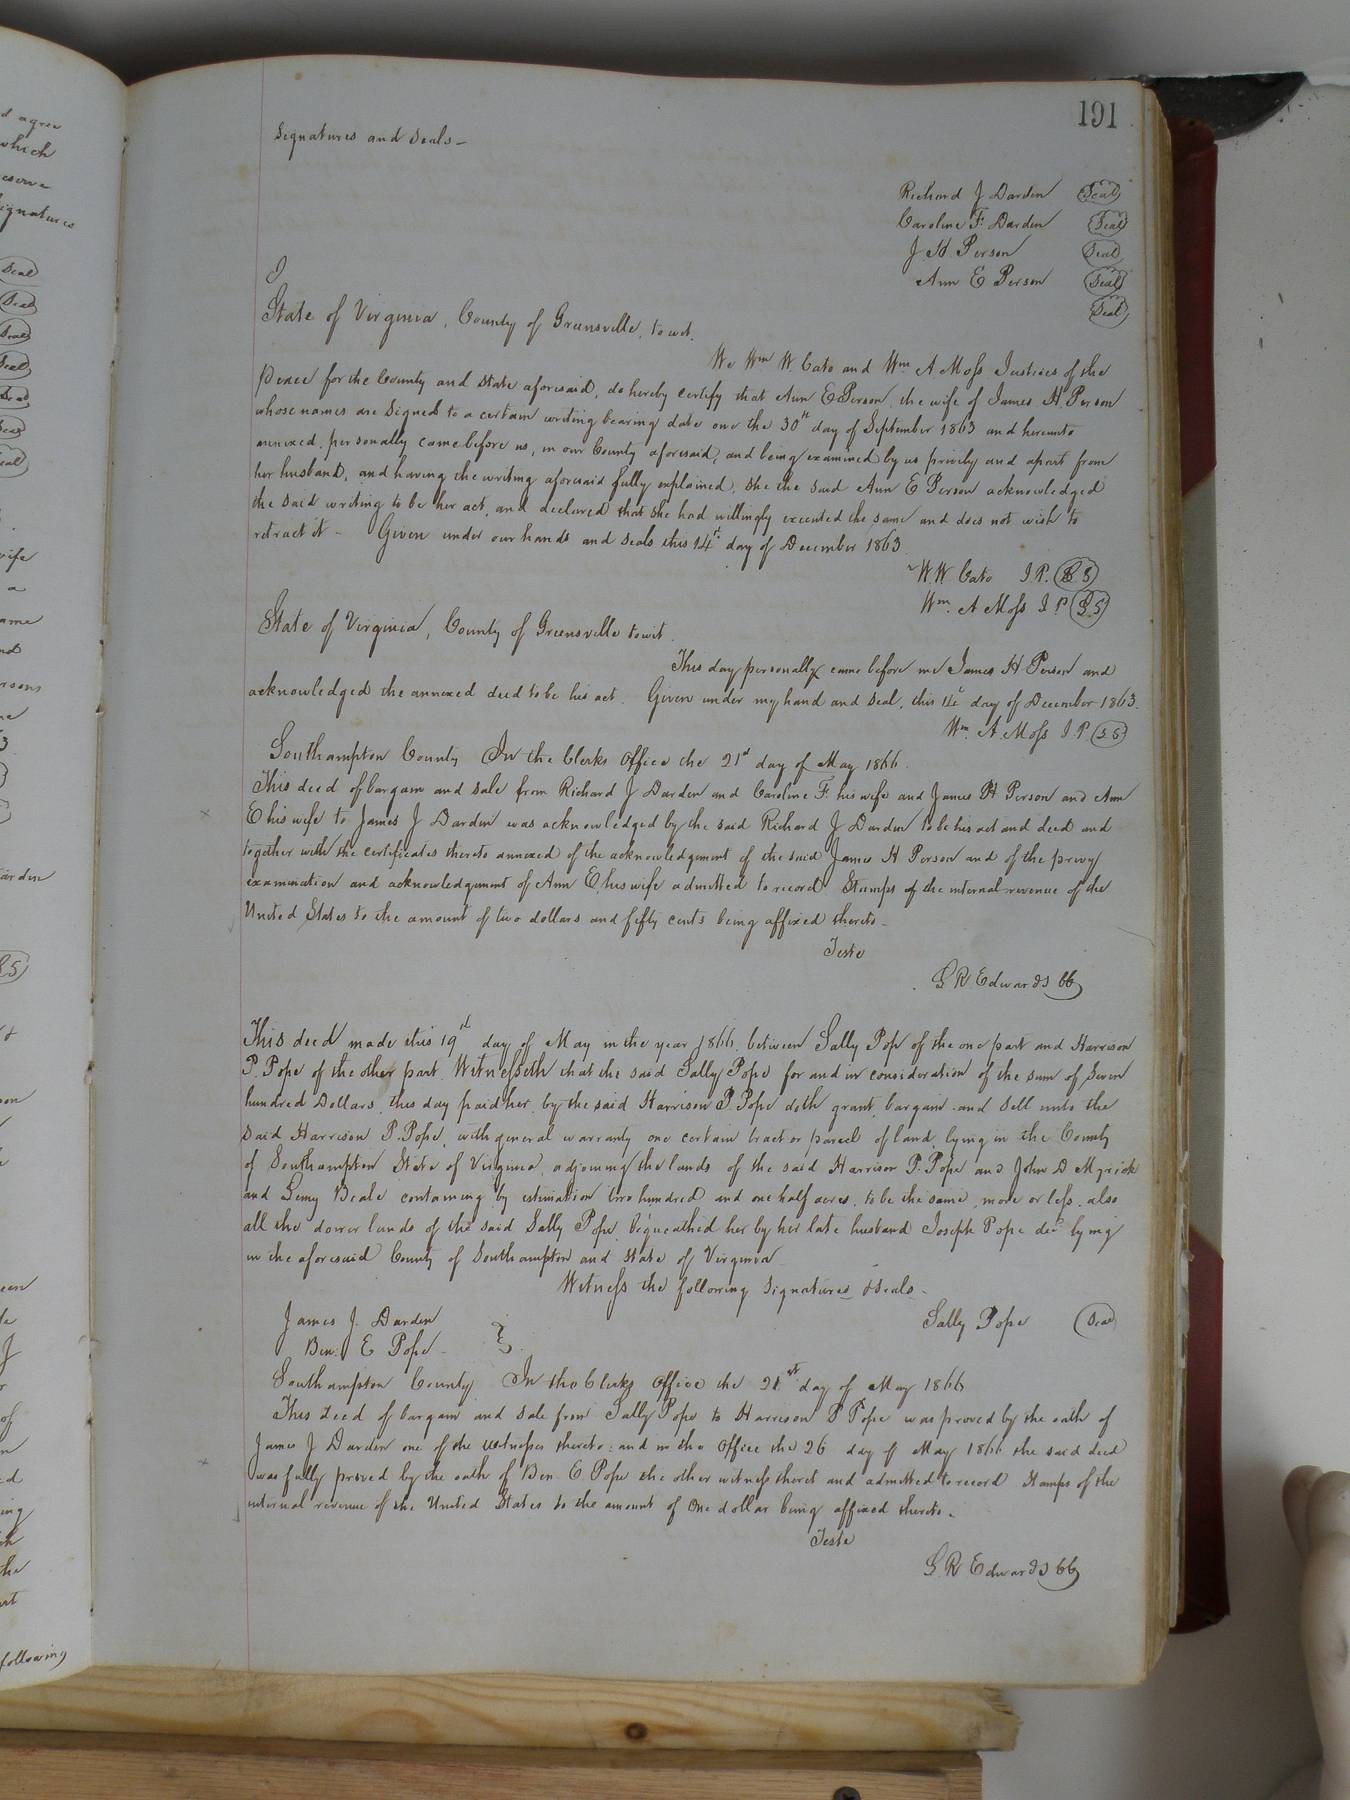 d agree
which
reserve
signatures
Seal
Seal
Seal
Seal
Seal
Seal
Seal
wife
a
same
nd
ersons
arden
following
191
Signatures and Seals -
Richard J Darden Seal
Caroline F. Darden Seal
J H Person Seal
Ann E Person Seal
Seal
State of Virginia, County of Greensville, to wit.
We Wm W. Cato and Wm A Moss Justices of the
Peace for the County and State aforesaid, do hereby certify that Ann E Person, the wife of James H. Person
whose names are signed to a certain writing bearing date on the 30th day of September 1863 and hereunto
annexed, personally came before us, in our County aforesaid, and being examined by us privily and apart from
her husband, and having the writing aforesaid fully explained, she the said Ann E Person acknowledged
the said writing to be her act, and declared that she had willingly executed the same and does not wish to
retract it - Given under our hands and seals this 14th day of December 1863
W W Cato J.P. LS
Wm. A Moss J P LS
State of Virginia, County of Greensville to wit.
This day personally came before me James H Person and
acknowledged the annexed deed to be his act. Given under my hand and seal, this 14th day of December 1863.
Wm. A. Moss J. P. LS
Southampton County In the Clerks Office the 21st day of May 1866.
This deed of bargain and sale from Richard J Darden and Caroline F. his wife and James H Person and Ann
E his wife to James J Darden was acknowledged by the said Richard J Darden to be his act and deed and
together with the certificates thereto annexed of the acknowledgement of the said James H Person and of the privy
examination and acknowledgment of Ann E, his wife admitted to record Stamps of the internal revenue of the
United States to the amount of two dollars and fifty cents being affixed thereto -
Teste
L R Edwards CC
This deed made this 19th day of May in the year 1866, between Sally Pope of the one part and Harrison
P. Pope of the other part. Witnesseth that the said Sally Pope for and in consideration of the sum of Seven
hundred Dollars, this day paid her, by the said Harrison P. Pope doth grant, bargain and sell unto the
said Harrison P. Pope, with general warranty one certain tract or parcel of land, lying in the County
of Southampton State of Virginia, adjoining the lands of the said Harrison P. Pope and John D Myrick
and Beale containing by estimation two hundred and one half acres, to be the same, more or less, also
all the dower lands of the said Sally Pope, bequeathed her by her late husband Joseph Pope decd lying
in the aforesaid County of Southampton and State of Virginia
Witness the following signatures & seals -
James J. Darden Sally Pope Seal
Ben. E Pope
Southampton County In the Clerks Office the 21st day of May 1866
This deed of bargain and sale from Sally Pope to Harrison P Pope was proved by the oath of
James J Darden one of the witnesses thereto: and in the Office the 26 day of May 1866 the said deed
was fully proved by the oath of Ben. E. Pope the other witness thereto and admitted to record Stamps of the
internal revenue of the United States to the amount of One dollar being affixed thereto.
Teste
L. R Edwards CC